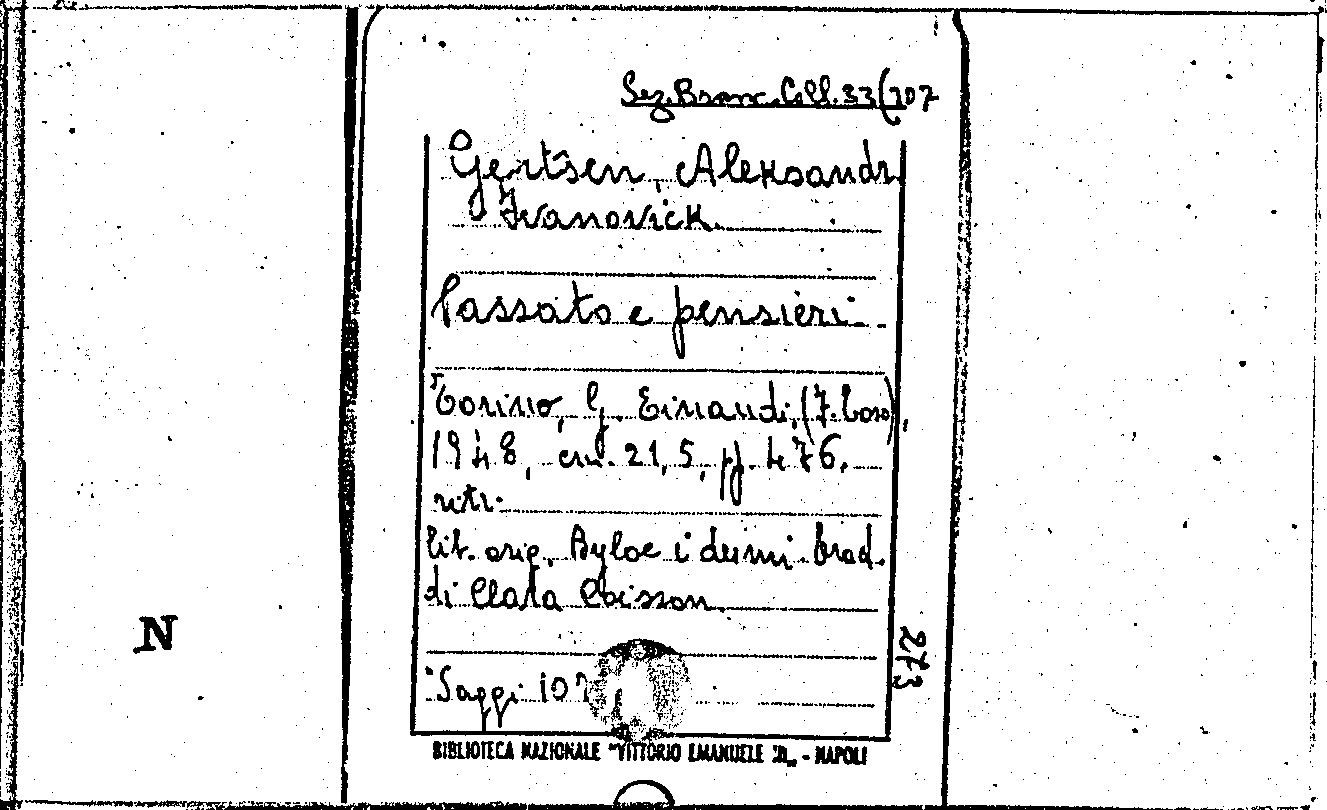 Sez. Branc. Coll. 33(207
Gertsen, Aleksandr
Ivanovick.
Passato e pensieri.
Torino, G. Einaudi, (F. Toso),
1948, cm. 21,5, pp. 476.
ritr.
tit. orig. Byloe i dumi. trad.
di Clara Coisson.
"Saggi 107
273
N
BIBLIOTECA NAZIONALE "VITTORIO EMANUELE III" - NAPOLI